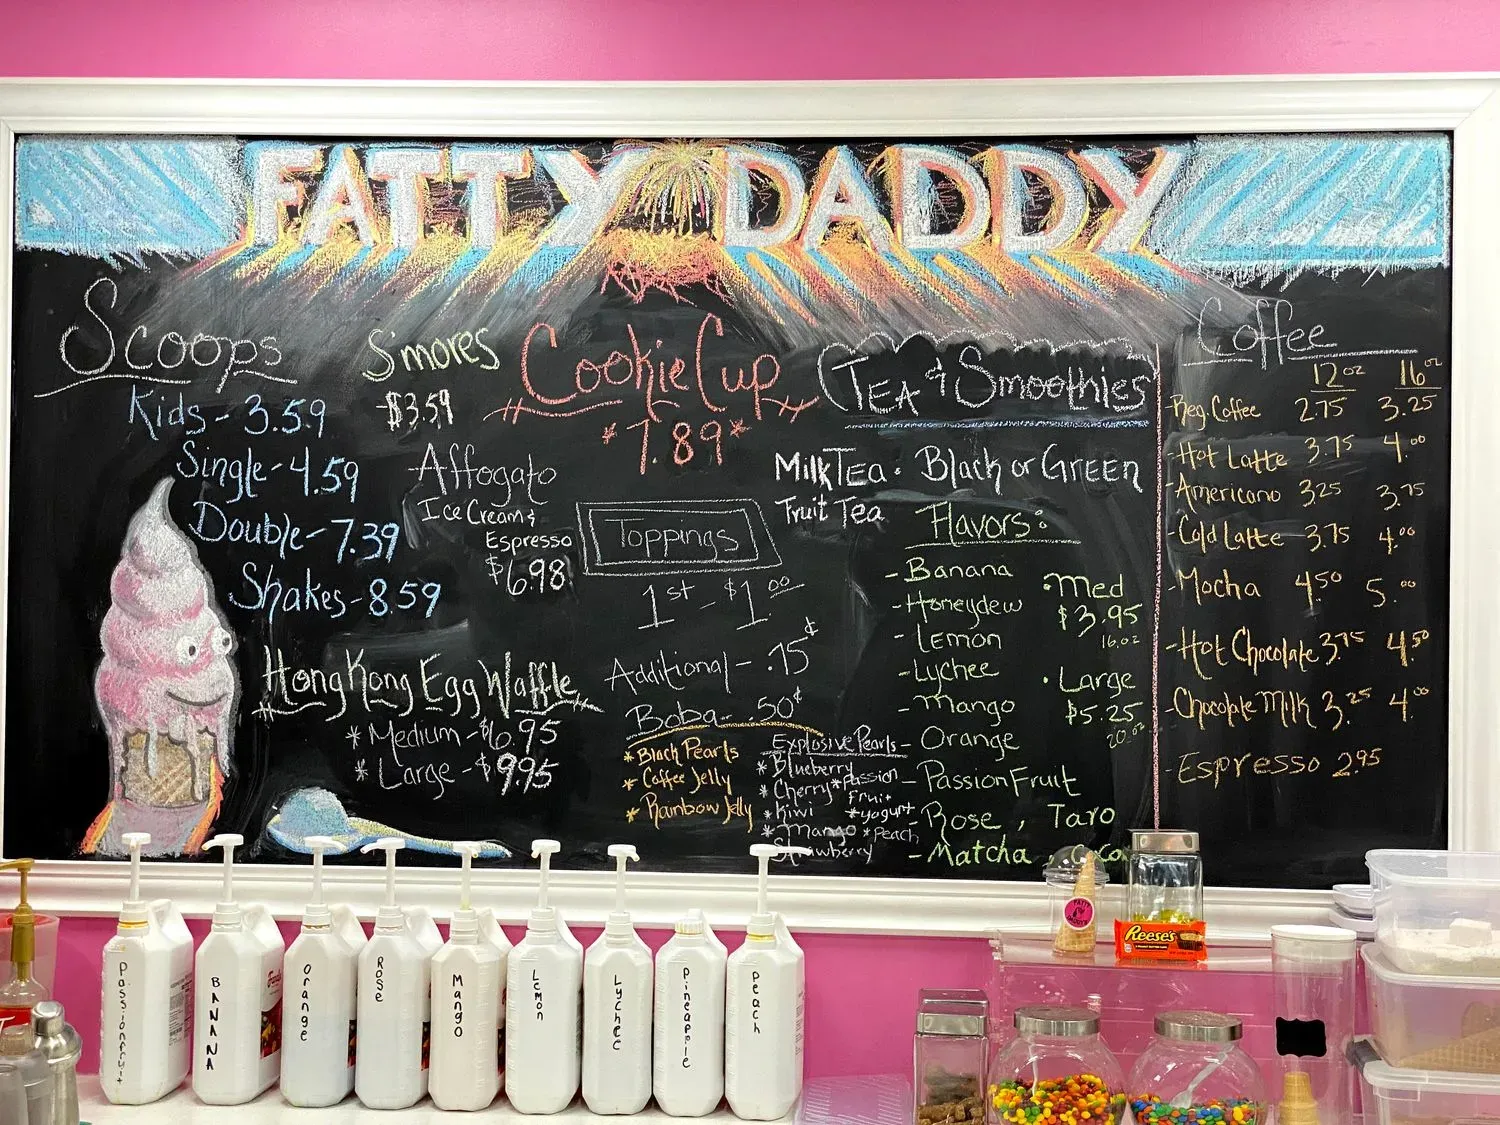 FATTY DADDY
Scoops
Kids - 3.59
Single - 4.59
Double - 7.39
Shakes - 8.59
S'mores
-$3.59
Affogato
Ice Cream &
Espresso
$6.98
Hong Kong Egg Waffle
* Medium - $6.95
* Large - $9.95
Cookie Cup
*7.89*
Toppings
1st - $1.00
Additional - .75¢
Boba - .50¢
* Black Pearls
* Coffee Jelly
* Rainbow Jelly
Explosive Pearls
* Blueberry
* Cherry * Passion
fruit
* Kiwi * yogurt
* Mango * Peach
Strawberry
TEA & Smoothies
Milk TEA: Black or GREEN
Fruit Tea
Flavors:
- Banana
- Honeydew
- Lemon
- Lychee
- Mango
- Orange
- Passion Fruit
- Rose, Taro
- Matcha,
• Med
$3.95
16.oz
• Large
$5.25
20.oz
Coffee
12oz 16oz
- Reg. Coffee 2.75 3.25
- Hot Latte 3.75 4.00
- Americano 3.25 3.75
- Cold Latte 3.75 4.00
- Mocha 4.50 5.00
- Hot Chocolate 3.75 4.50
- Chocolate Milk 3.25 4.00
- Espresso 2.95
Passionfruit
BANANA
Orange
Rose
Mango
Lemon
Lychee
Pineapple
Peach
FATTY
DADDY'S
Reese's